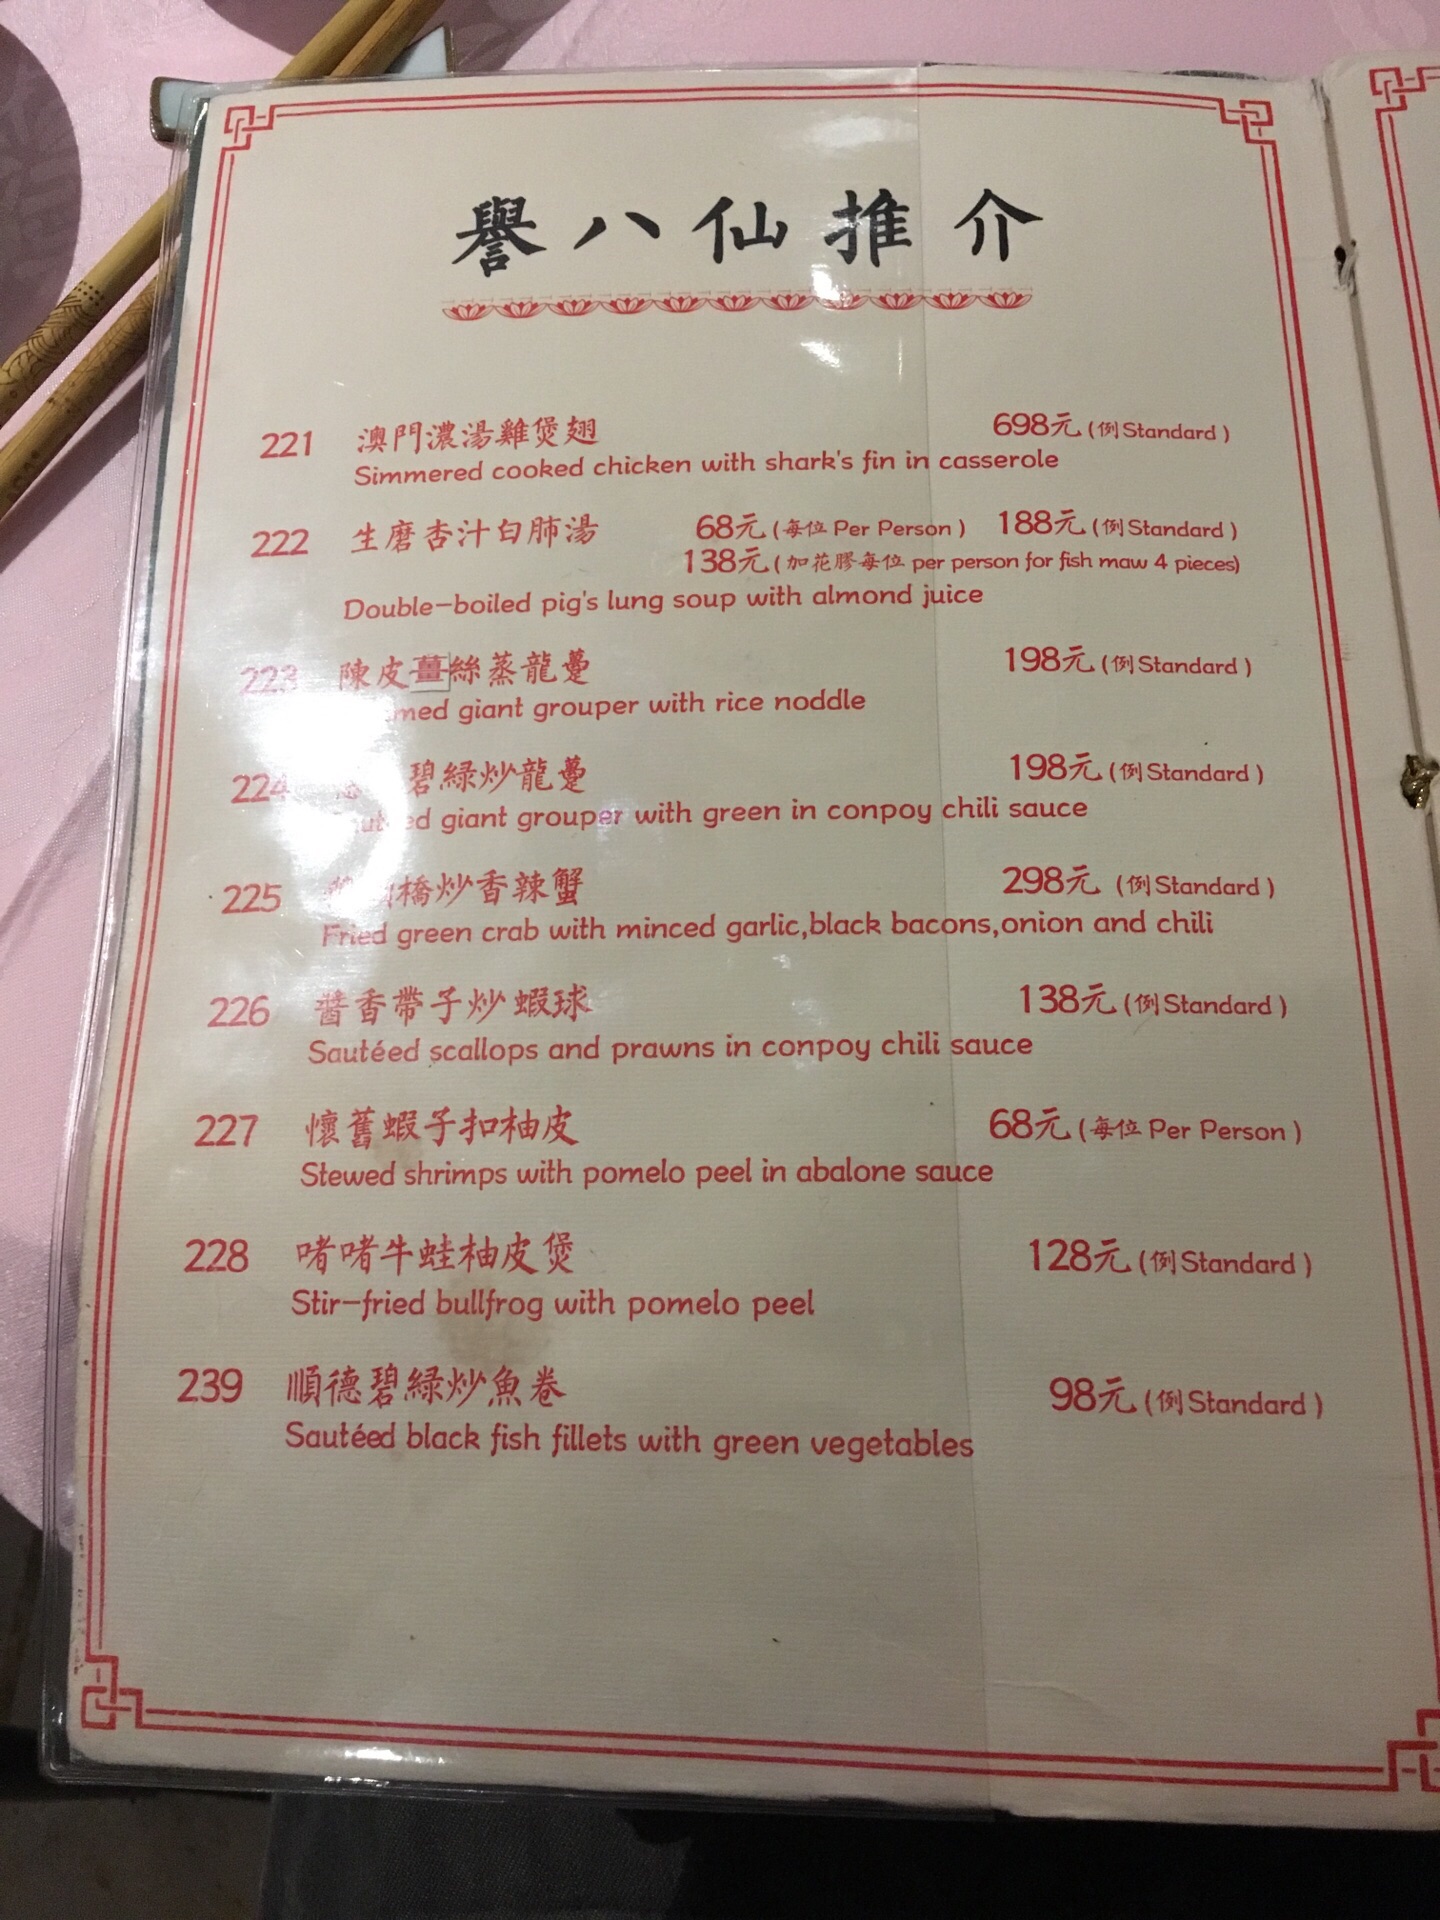 譽八仙推介
221 澳門濃湯雞煲翅 698元 (例 Standard)
Simmered cooked chicken with shark's fin in casserole
222 生磨杏汁白肺湯 68元 (每位 Per Person) 188元 (例 Standard)
138元 (加花膠每位 per person for fish maw 4 pieces)
Double-boiled pig's lung soup with almond juice
223 陳皮薑絲蒸龍躉 198元 (例 Standard)
giant grouper with rice noddle
224 碧綠炒龍躉 198元 (例 Standard)
giant grouper with green in conpoy chili sauce
225 橋炒香辣蟹 298元 (例 Standard)
Fried green crab with minced garlic,black bacons,onion and chili
226 醬香帶子炒蝦球 138元 (例 Standard)
Sautéed scallops and prawns in conpoy chili sauce
227 懷舊蝦子扣柚皮 68元 (每位 Per Person)
Stewed shrimps with pomelo peel in abalone sauce
228 啫啫牛蛙柚皮煲 128元 (例 Standard)
Stir-fried bullfrog with pomelo peel
239 順德碧綠炒魚卷 98元 (例 Standard)
Sautéed black fish fillets with green vegetables